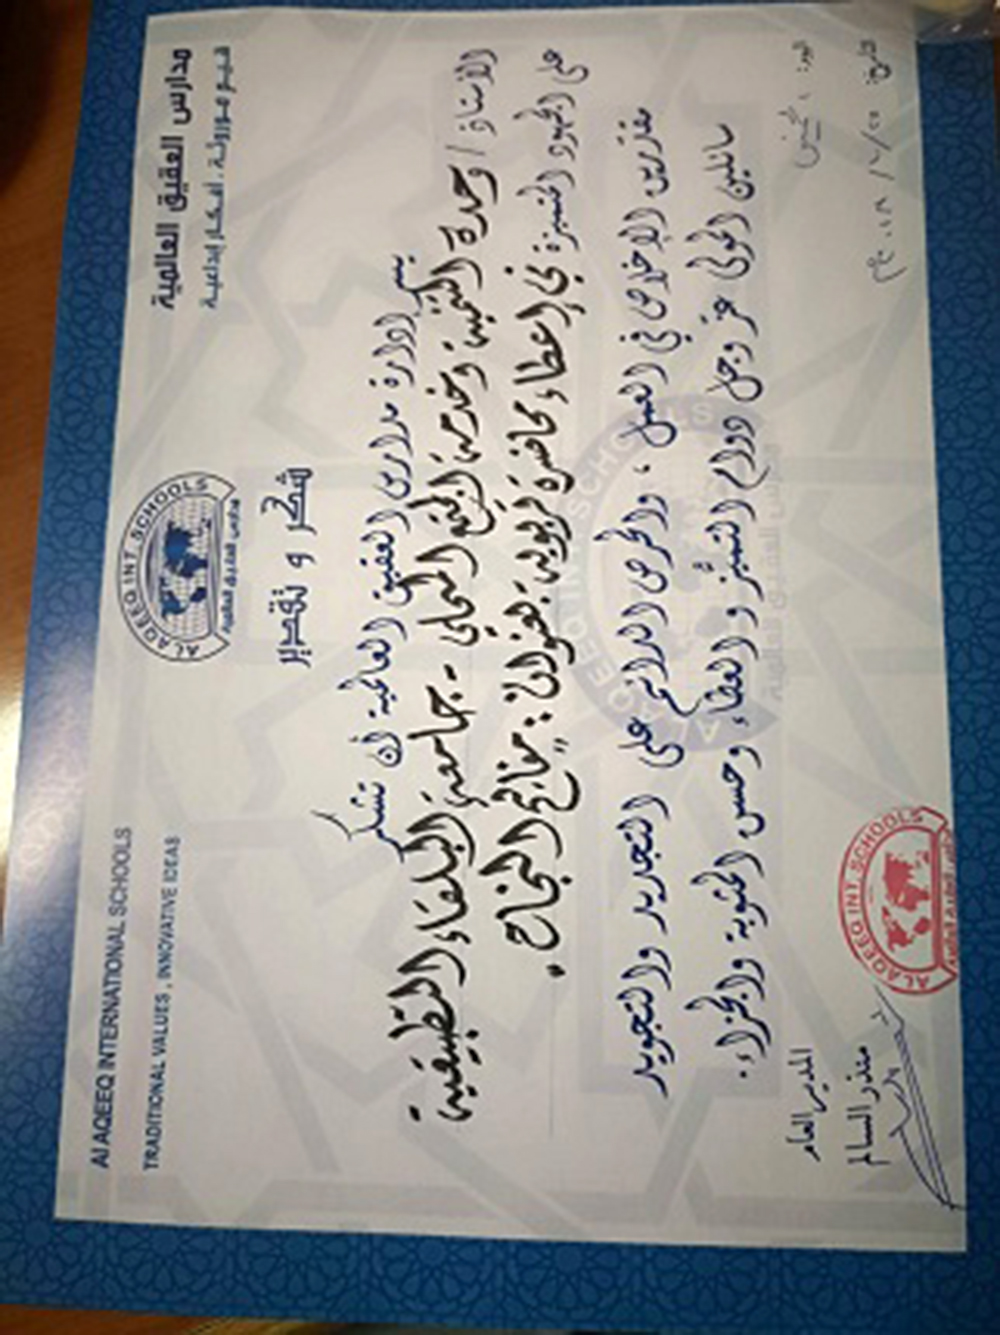 مدارس العقيق العالمية
قيم موروثة . أفكار إبداعية
Al AQEEQ INTERNATIONAL SCHOOLS
TRADITIONAL VALUES , INNOVATIVE IDEAS
AL AQEEQ INT SCHOOLS
مدارس العقيق العالمية
شكر و تقدير
يسر إدارة مدارس العقيق العالمية أن تشكر
الأستاذ / وحدة التنمية وخدمة المجتمع المحلي - جامعة البلقاء التطبيقية
على الجهود المتميزة في إعطاء محاضرة تربوية بعنوان: مفاتيح النجاح.
مقدرين الإخلاص في العمل ، والحرص الدائم على التجديد والتجويد
سائلين المولى عز وجل دوام التميُّز و العطاء وحسن المثوبة والجزاء.
اليوم :
التاريخ:
المدير العام
منذر السالم
AL AQEEQ INT SCHOOLS